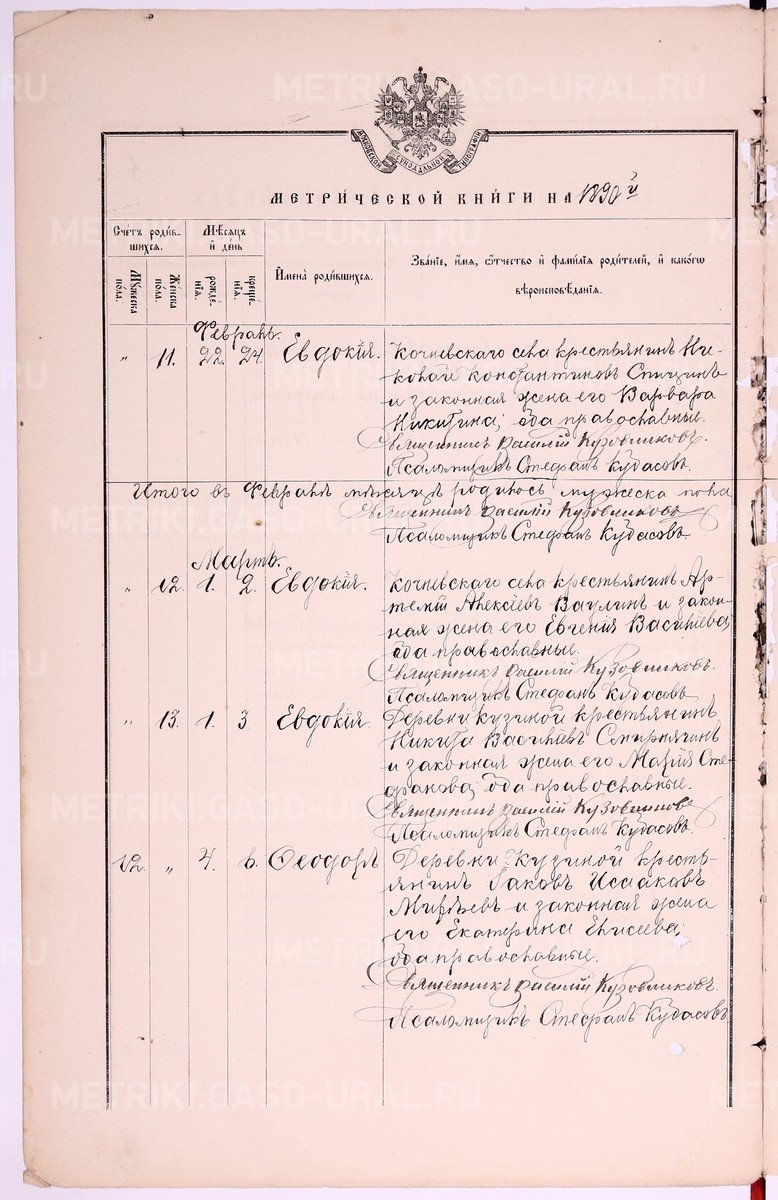 МОСКОВСКОЙ СИНОДАЛЬНОЙ ТИПОГРАФІИ
МЕТРИЧЕСКОЙ КНИГИ НА 1890 й
Счетъ родив-
шихся.
Мѣсяцъ
и день
Имена родившихся.
Званіе, имя, отчество и фамилія родителей, и какого
вѣроисповѣданія.
Мужеска
пола.
Женска
пола.
рожде-
нія.
креще-
нія.
Февраль.
" 11. 22. 24. Евдокія. Кочневскаго села крестьянинъ Ни-
колай Константиновъ Спицинъ
и законная жена его Варвара
Никитина; оба православные.
Священникъ Василій Кузовниковъ.
Псаломщикъ Стефанъ Кудасовъ.
Итого въ Февралѣ мѣсяцѣ родилось мужеска пола
Священникъ Василій Кузовниковъ
Псаломщикъ Стефанъ Кудасовъ
Мартъ.
" 12. 1. 2. Евдокія. Кочневскаго села крестьянинъ Ар-
темій Алексіевъ Ваулинъ и закон-
ная жена его Евгенія Васильева;
оба православные.
Священникъ Василій Кузовниковъ.
Псаломщикъ Стефанъ Кудасовъ
" 13. 1. 3 Евдокія. Деревни Кузиной крестьянинъ
Никита Васильевъ Смирнягинъ
и законная жена его Марія Сте-
фанова; оба православные.
Священникъ Василій Кузовниковъ
Псаломщикъ Стефанъ Кудасовъ
12. " 4. 6. Ѳеодоръ Деревни Кузиной кресть-
янинъ Іаковъ Исааковъ
и законная жена
его Екатерина Елисеева;
оба православные.
Священникъ Василій Кузовниковъ.
Псаломщикъ Стефанъ Кудасовъ
METRIKI.GASO-URAL.RU